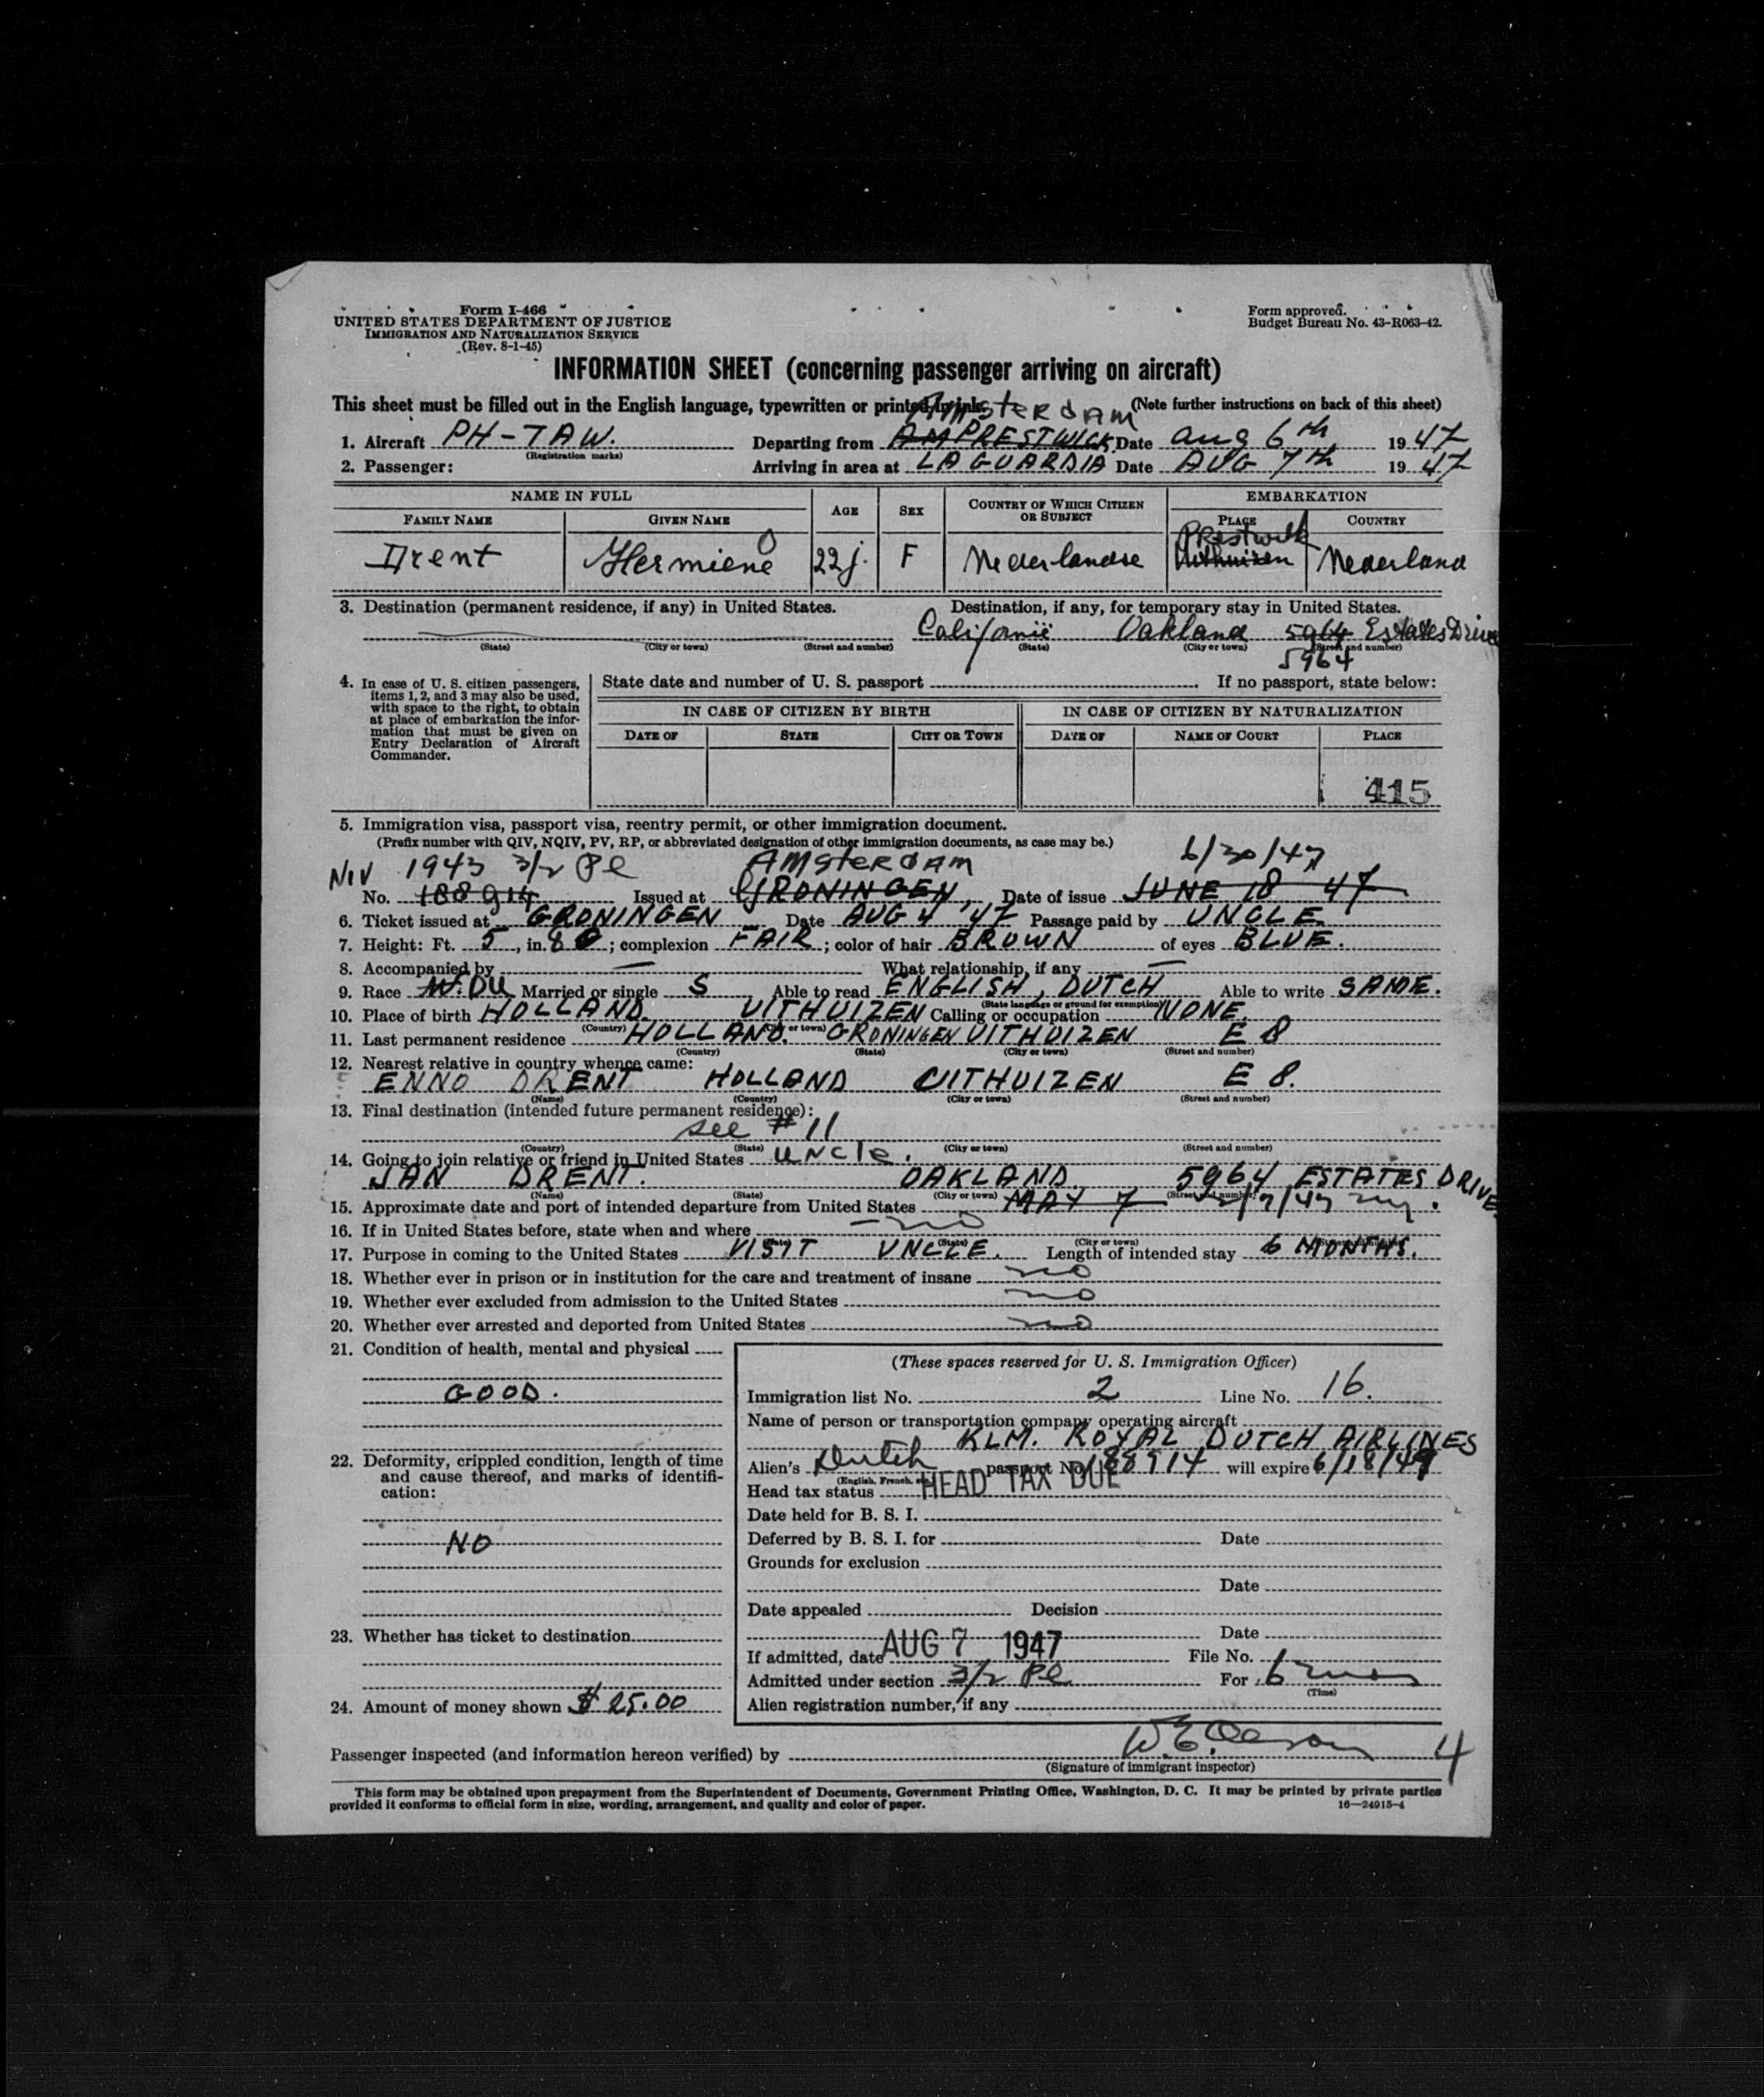 Form I-466
UNITED STATES DEPARTMENT OF JUSTICE
IMMIGRATION AND NATURALIZATION SERVICE
(Rev. 8-1-45)
Form approved.
Budget Bureau No. 43-R063-42.
INFORMATION SHEET (concerning passenger arriving on aircraft)
This sheet must be filled out in the English language, typewritten or printed in ink. (Note further instructions on back of this sheet)
AMSTERDAM
1. Aircraft PH-TAW. Departing from PRESTWICK Date Aug 6th 1947
(Registration marks)
2. Passenger: Arriving in area at LA GUARDIA Date AUG 7th 1947
NAME IN FULL
FAMILY NAME GIVEN NAME AGE SEX COUNTRY OF WHICH CITIZEN OR SUBJECT EMBARKATION
PLACE COUNTRY
Prestwick
Drent Hermiene 22 j. F Nederlandse Uithuizen Nederland
3. Destination (permanent residence, if any) in United States. Destination, if any, for temporary stay in United States.
Californië Oakland 5964 Estates Drive
(State) (City or town) (Street and number) (State) (City or town) (Street and number)
5964
4. In case of U. S. citizen passengers, items 1, 2, and 3 may also be used, with space to the right, to obtain at place of embarkation the information that must be given on Entry Declaration of Aircraft Commander.
State date and number of U. S. passport If no passport, state below:
IN CASE OF CITIZEN BY BIRTH IN CASE OF CITIZEN BY NATURALIZATION
DATE OF STATE CITY OR TOWN DATE OF NAME OF COURT PLACE
415
5. Immigration visa, passport visa, reentry permit, or other immigration document.
(Prefix number with QIV, NQIV, PV, RP, or abbreviated designation of other immigration documents, as case may be.)
NIV 1943 3/2 Pl AMSTERDAM 6/30/47
No. 188914 Issued at GRONINGEN, Date of issue JUNE 18 47
6. Ticket issued at GRONINGEN Date AUG 4 '47 Passage paid by UNCLE.
7. Height: Ft. 5, in. 8; complexion FAIR; color of hair BROWN of eyes BLUE.
8. Accompanied by — What relationship, if any —
9. Race DU Married or single S Able to read ENGLISH, DUTCH Able to write SAME.
(State language or ground for exemption)
10. Place of birth HOLLAND. UITHUIZEN Calling or occupation NONE.
(Country) (City or town)
11. Last permanent residence HOLLAND. GRONINGEN UITHUIZEN E 8
(Country) (State) (City or town) (Street and number)
12. Nearest relative in country whence came:
ENNO DRENT HOLLAND UITHUIZEN E 8.
(Name) (Country) (City or town) (Street and number)
13. Final destination (intended future permanent residence):
see #11
(Country) (State) (City or town) (Street and number)
14. Going to join relative or friend in United States UNCLE.
JAN DRENT. OAKLAND. 5964 ESTATES DRIVE
(Name) (State) (City or town) (Street and number)
15. Approximate date and port of intended departure from United States MAY 7 2/7/47 ny.
16. If in United States before, state when and where — no
(State) (City or town)
17. Purpose in coming to the United States VISIT UNCLE. Length of intended stay 6 MONTHS.
18. Whether ever in prison or in institution for the care and treatment of insane no
19. Whether ever excluded from admission to the United States no
20. Whether ever arrested and deported from United States no
21. Condition of health, mental and physical
GOOD.
22. Deformity, crippled condition, length of time and cause thereof, and marks of identification:
NO
23. Whether has ticket to destination
24. Amount of money shown $ 25.00
(These spaces reserved for U. S. Immigration Officer)
Immigration list No. 2 Line No. 16.
Name of person or transportation company operating aircraft
KLM. ROYAL DUTCH AIRLINES
Alien's Dutch passport No. 188914 will expire 6/18/49
(English, French, etc.)
Head tax status HEAD TAX DUE
Date held for B. S. I.
Deferred by B. S. I. for Date
Grounds for exclusion
Date
Date appealed Decision
Date
If admitted, date AUG 7 1947 File No.
Admitted under section 3/2 Pl For 6 mos
(Time)
Alien registration number, if any
Passenger inspected (and information hereon verified) by W. E. 4
(Signature of immigrant inspector)
This form may be obtained upon prepayment from the Superintendent of Documents, Government Printing Office, Washington, D. C. It may be printed by private parties
provided it conforms to official form in size, wording, arrangement, and quality and color of paper. 16—24915-4